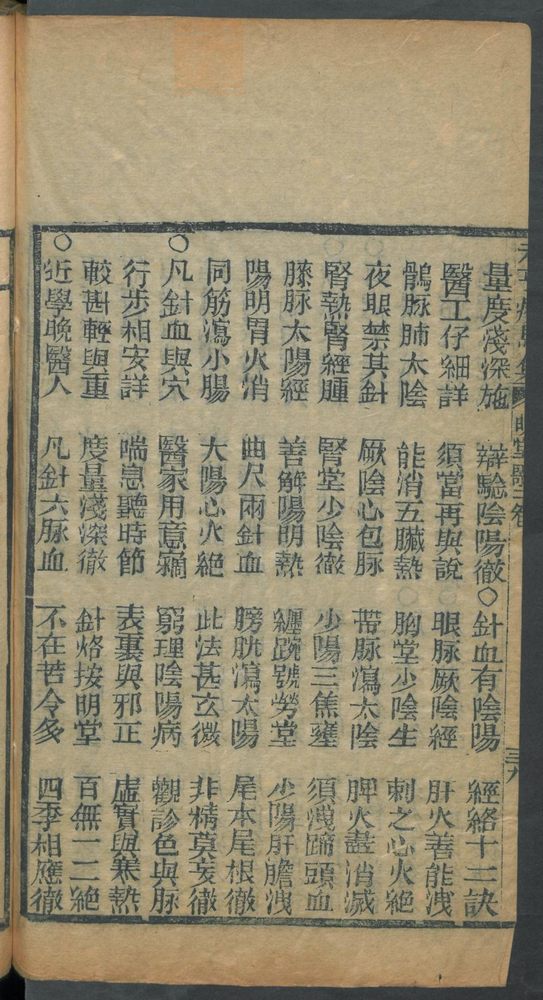 量度淺深施 辯驗陰陽徹○針血有陰陽 經絡十二訣
醫工仔細詳 須當再與說○眼脉厥陰經 肝火善能洩
鶻脉肺太陰 能消五臟熱○胸堂少陰生 刺之心火絕
○夜眼禁其針 厥陰心包脉 帶脉瀉太陰 脾火盡消滅
○腎執腎經腫 腎堂少陰徹 少陽三焦壅 須洩蹄頭血
膝脉太陽經 善解陽明熱 纏踠號勞堂 少陽肝膽洩
陽明胃火消 曲尺兩針血 膀胱瀉太陽 尾本尾根徹
同筋瀉小腸 大陽心火絕 此法甚玄微 非精莫妄徹
○凡針血與穴 醫家用意竊 窮理陰陽病 觀診色與脉
行步相安詳 喘息聽時節 表裏與邪正 虛實與寒熱
較斟輕與重 度量淺深徹 針烙按明堂 百無一二絕
○近學晚醫人 凡針六脉血 不在苦令多 四季相應徹